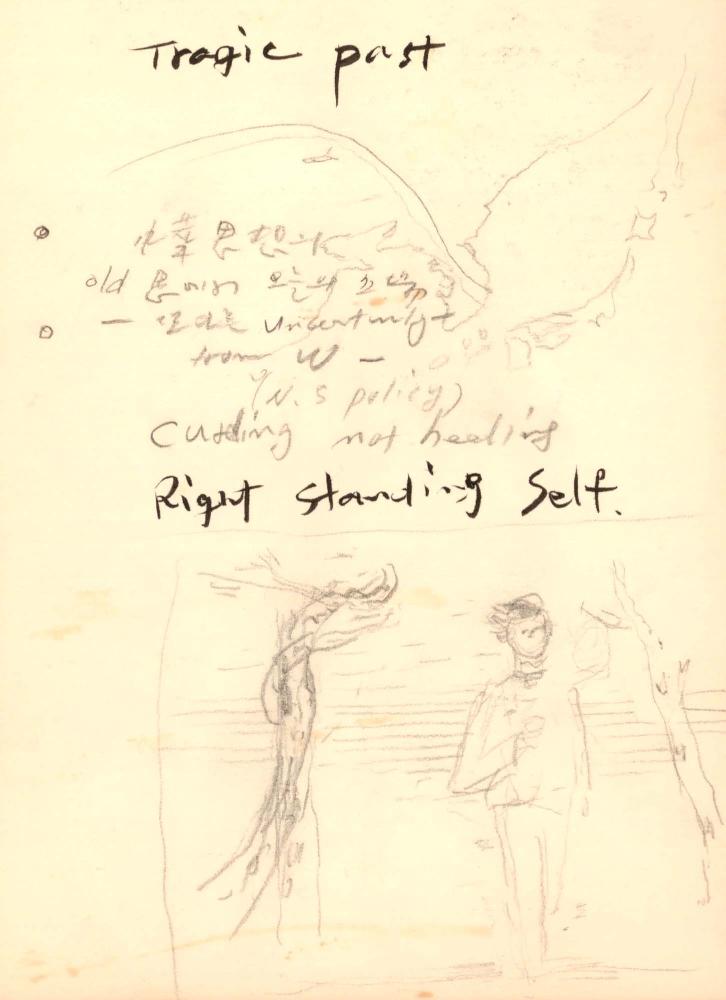 Tragic past
思想의
old 思에서 오늘의
— 또다른 uncertainty
from W —
(N.S policy)
Cutting not healing
Right standing Self.